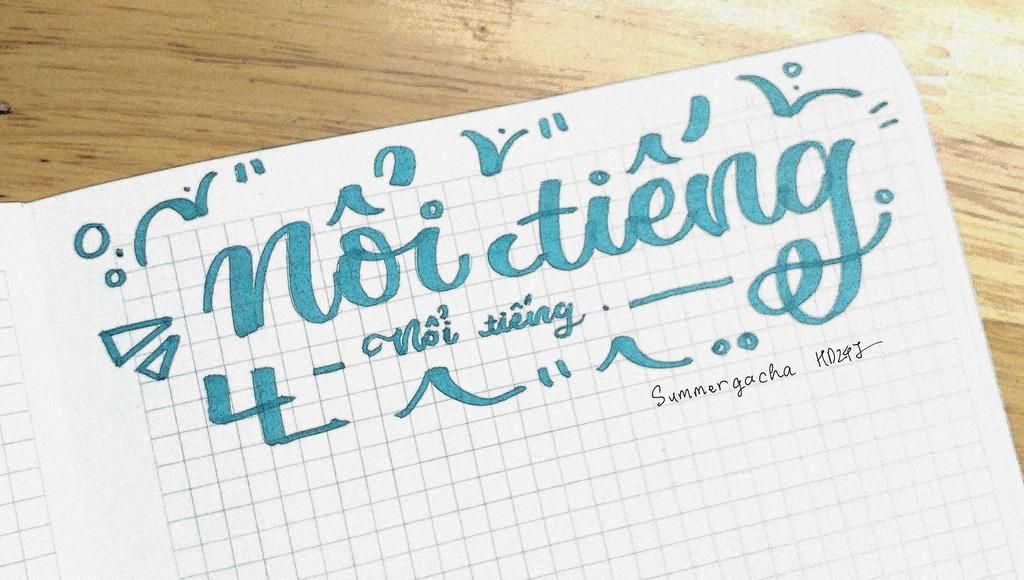 Nổi tiếng
Nổi tiếng.
Summergacha